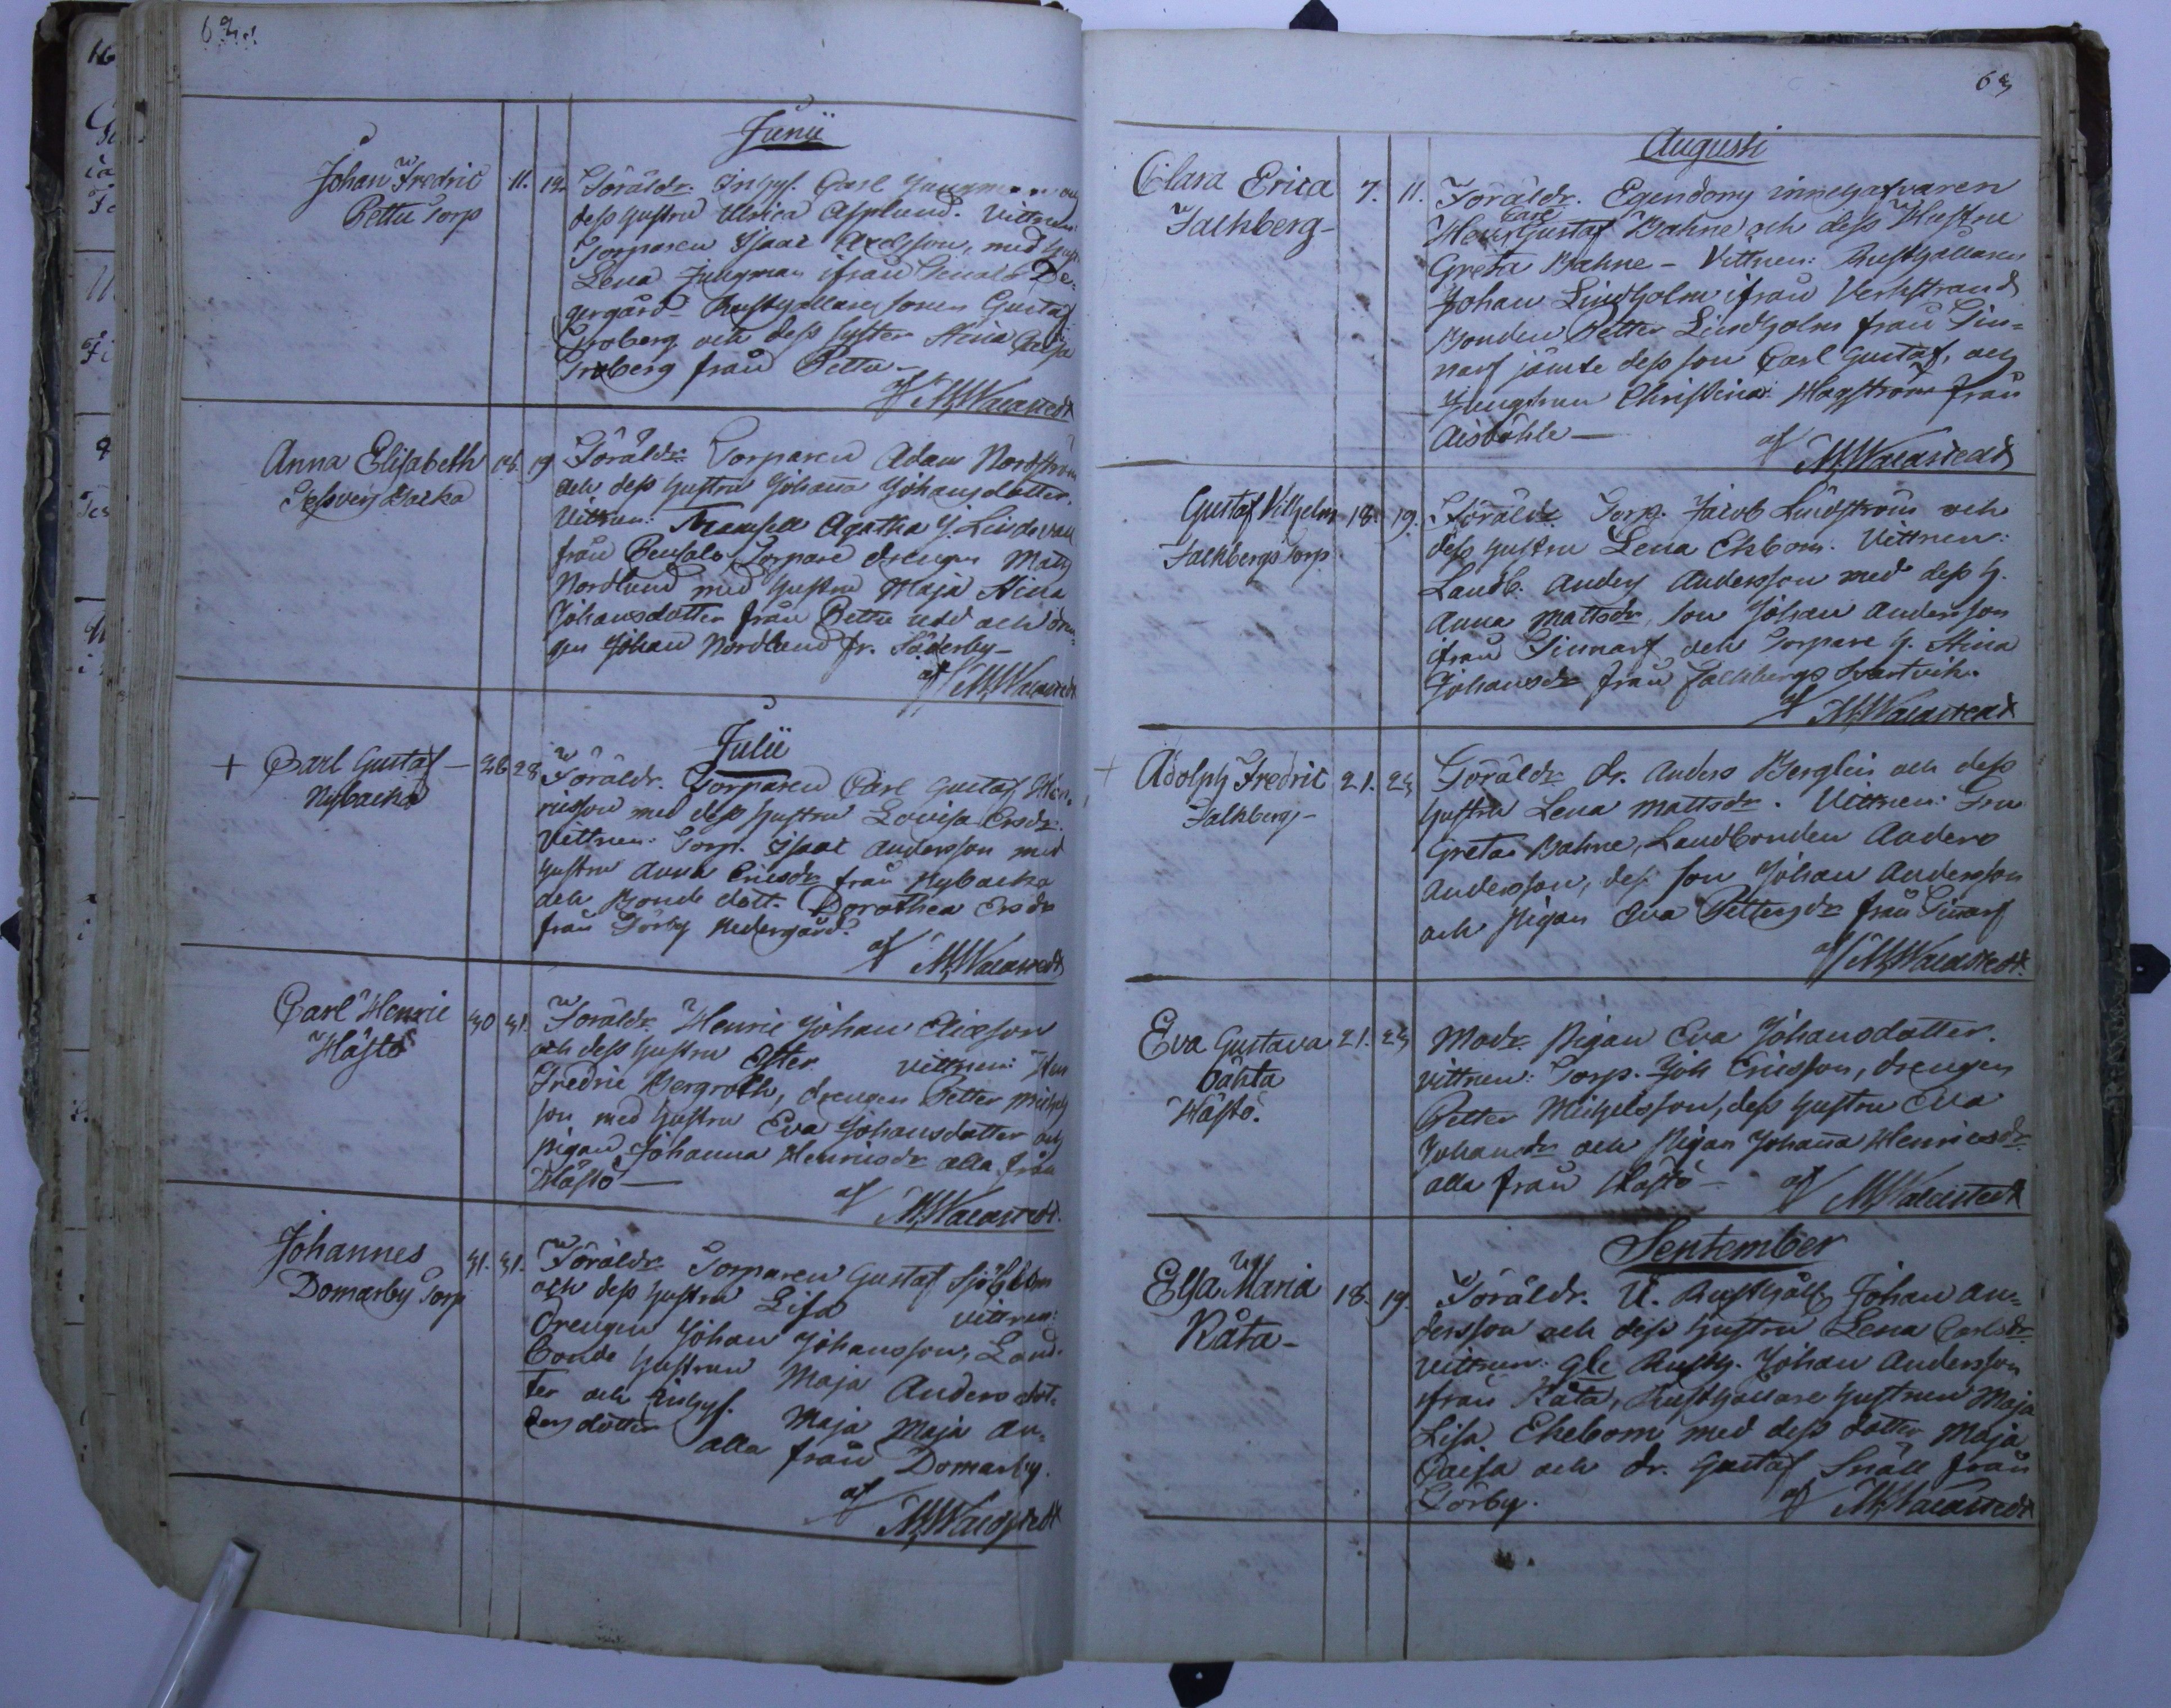 62.
Junii
Johan Fredric 11. 12. Föräldr. Inhys. Carl
Pettu Torp dess hustru Ulrica Asplund. Vittnen:
Torparen Isaac Axelsson, med hust.
Lena Jungman ifrån
gergård Rusthållare sonen Gustaf
Broberg och dess syster Stina Caisa
Broberg från Pettu
af M. Walastedt
Anna Elisabeth 18. 19 Föräldr. Torparen Adam Nordström
Backa och dess hustru Johana Johansdotter.
Vittnen: Mamsell Agatha J.
från Torpare drengen Matts
Nordlund med hustru Maja Stina
Johansdotter från Pettu udd och dren-
gen Johan Nordlund fr. Söderby-
af M. Walastedt
Julii
+ Carl Gustaf - 26 28 Föräldr. Torparen Carl Gustaf Hen-
Nybacka ricsson med dess hustru Lovisa Ersdr.
Vittnen: Torp. Isaac Andersson med
hustru Anna Ericsdr från Nybacka
och Bonde dott. Dorothea Ersdr
från Förby Nedergård.
af M. Walastedt
Carl Henric 30 31. Föräldr. Henric Johan Ericsson
Håstö och dess hustru Ester Vittnen:
Fredric Bergroth, drengen Petter Michels
son med hustru Eva Johansdotter och
pigan Johanna Henricsdr alla från
Håstö —
af M. Walastedt.
Johannes 31. 31. Föräldr. Torparen Gustaf Sjöblom
Domarby Torp och dess hustru Lisa Vittnen:
Drengen Johan Johansson, Land-
bonde hustrun Maja Anders dot-
ter och Inhys. Maja Maja An-
dersdotter alla från Domarby.
af M. Walastedt
63
Augusti
Clara Erica 7. 11. Föräldr. Egendoms innehafvaren
Falkberg- Herr Carl Gustaf Bahne och dess Hustru
Greta Bahne - Vittnen: Rusthållaren
Johan Lindholm ifrån Verkstrand
Bonden Petter Lindholm från Fin-
narf jämte dess son Carl Gustaf, och
Jungfrun Christina Hagström från
Aisböhle —
af M. Walastedt
Gustaf Vilhelm 18. 19. Föräldr Torp. Jacob Lindström och
Falkbergs Torp dess hustru Lena Ekbom. Vittnen:
Landb. Anders Andersson med dess h.
Anna Mattsdr, son Johan Andersson
ifrån Finnarf och Torpare h. Stina
Johansdr från Falkbergs Svartvik.
af M. Walastedt
+ Adolph Fredric 21. 23 Föräldr. dr. Anders Berglin och dess
Falkberg- hustru Lena Mattsdr. Vittnen: Fru
Greta Bahne, Landbonden Anders
Andersson, des son Johan Andersson
och Pigan Eva Pettersdr från Finarf
af M. Walastedt.
Eva Gustava 21. 23 Modr. Pigan Eva Johansdotter.
oäkta Vittnen: Torp. Joh Ericsson, drengen
Håstö. Petter Michelsson, dess hustru Eva
Johansdr och Pigan Johana Henricsdr.
alla från Håstö - af M. Walastedt
September
Elsa Maria 18. 19. Föräldr. U. Rusthåll. Johan An-
Råta- dersson och dess hustru Lena Carlsdr.
Vittnen: Gle Rusth. Johan Andersson
från Råta, Rusthållare hustrun Maja
Lisa Ekebom med dess dotter Maja
Caisa och dr. Gustaf Snäll från
Förby.
af M. Walastedt